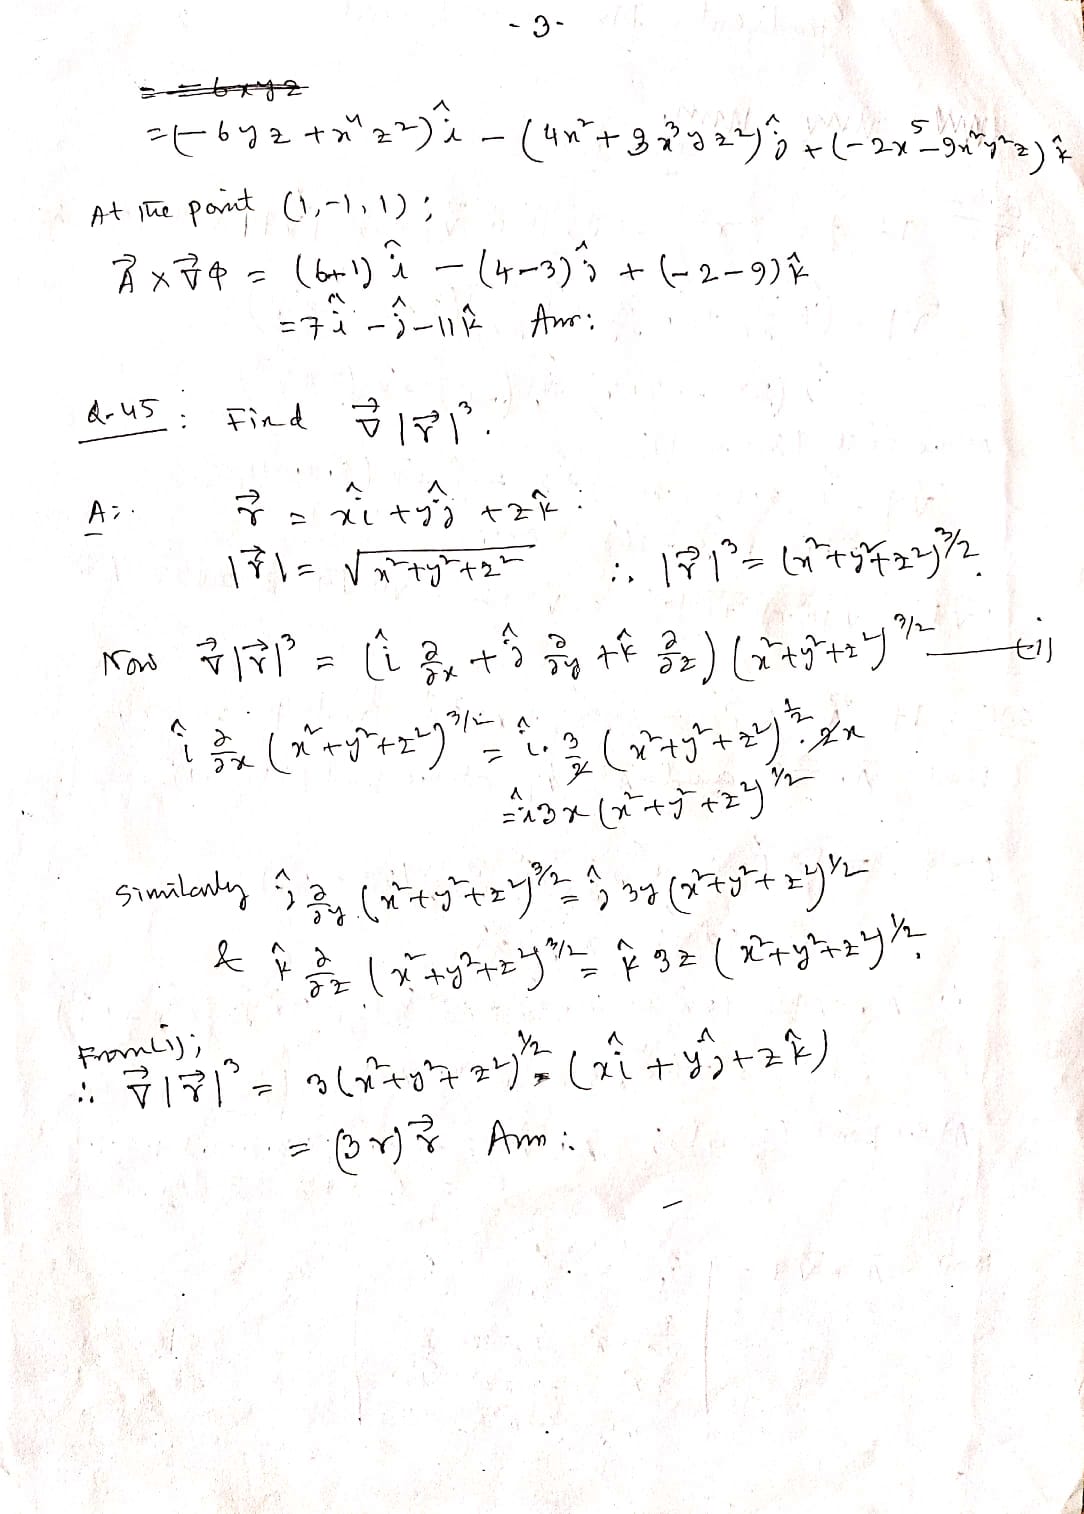 -3-
= = 6xyz
= (-6yz + x⁴z²)î - (4x² + 3x³yz²)ĵ + (-2x⁵ - 9x²y²z)k̂
At the point (1,-1,1);
A⃗ × ∇⃗φ = (6+1)î - (4-3)ĵ + (-2-9)k̂
= 7î - ĵ - 11k̂ Ans:
Q-45: Find ∇⃗|r⃗|³.
A:. r⃗ = xî + yĵ + zk̂ :
|r⃗| = √x²+y²+z² ∴ |r⃗|³ = (x²+y²+z²)^3/2.
Now ∇⃗|r⃗|³ = (î ∂/∂x + ĵ ∂/∂y + k̂ ∂/∂z) (x²+y²+z²)^3/2 —— (i)
î ∂/∂x (x²+y²+z²)^3/2 = î. 3/2 (x²+y²+z²)^1/2 . 2x
= î 3x (x²+y²+z²)^1/2
Similarly ĵ ∂/∂y (x²+y²+z²)^3/2 = ĵ 3y (x²+y²+z²)^1/2
& k̂ ∂/∂z (x²+y²+z²)^3/2 = k̂ 3z (x²+y²+z²)^1/2.
From (i);
∴ ∇⃗|r⃗|³ = 3(x²+y²+z²)^1/2 (xî + yĵ + zk̂)
= (3r) r⃗ Ans: